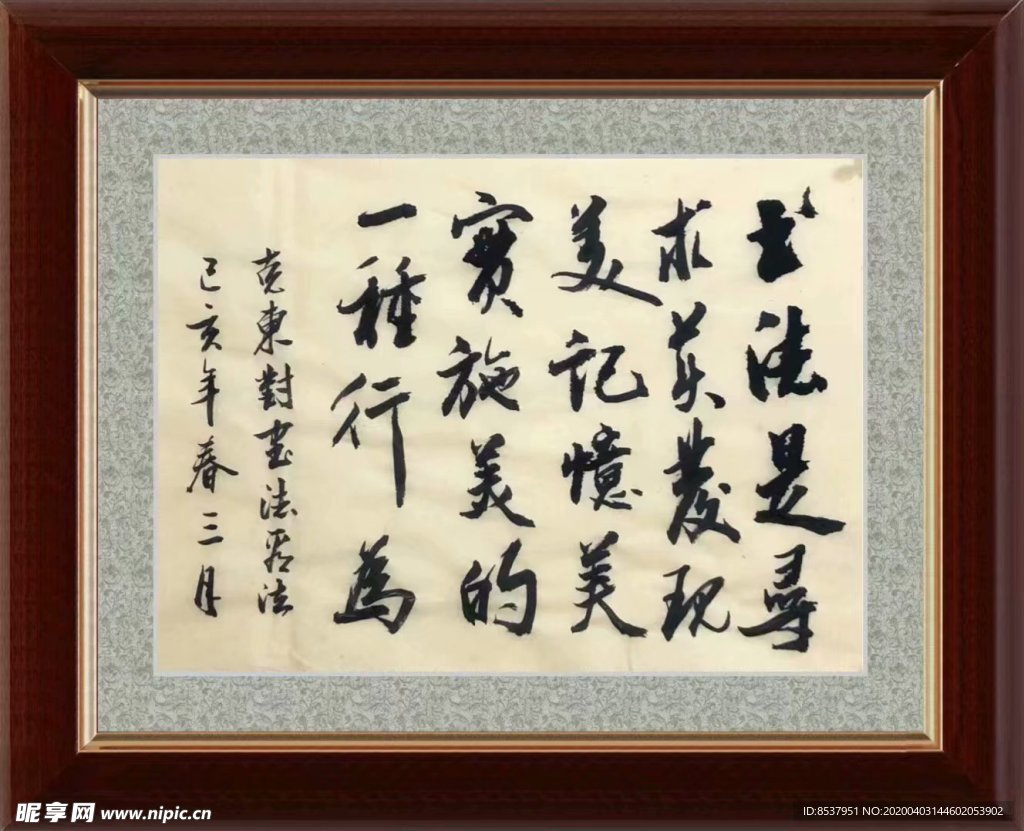 书法是尋
求美發現
美記憶美
實施美的
一種行為
克東對書法看法
己亥年春三月
昵享网 www.nipic.cn
ID:8537951 NO:20200403144602053902